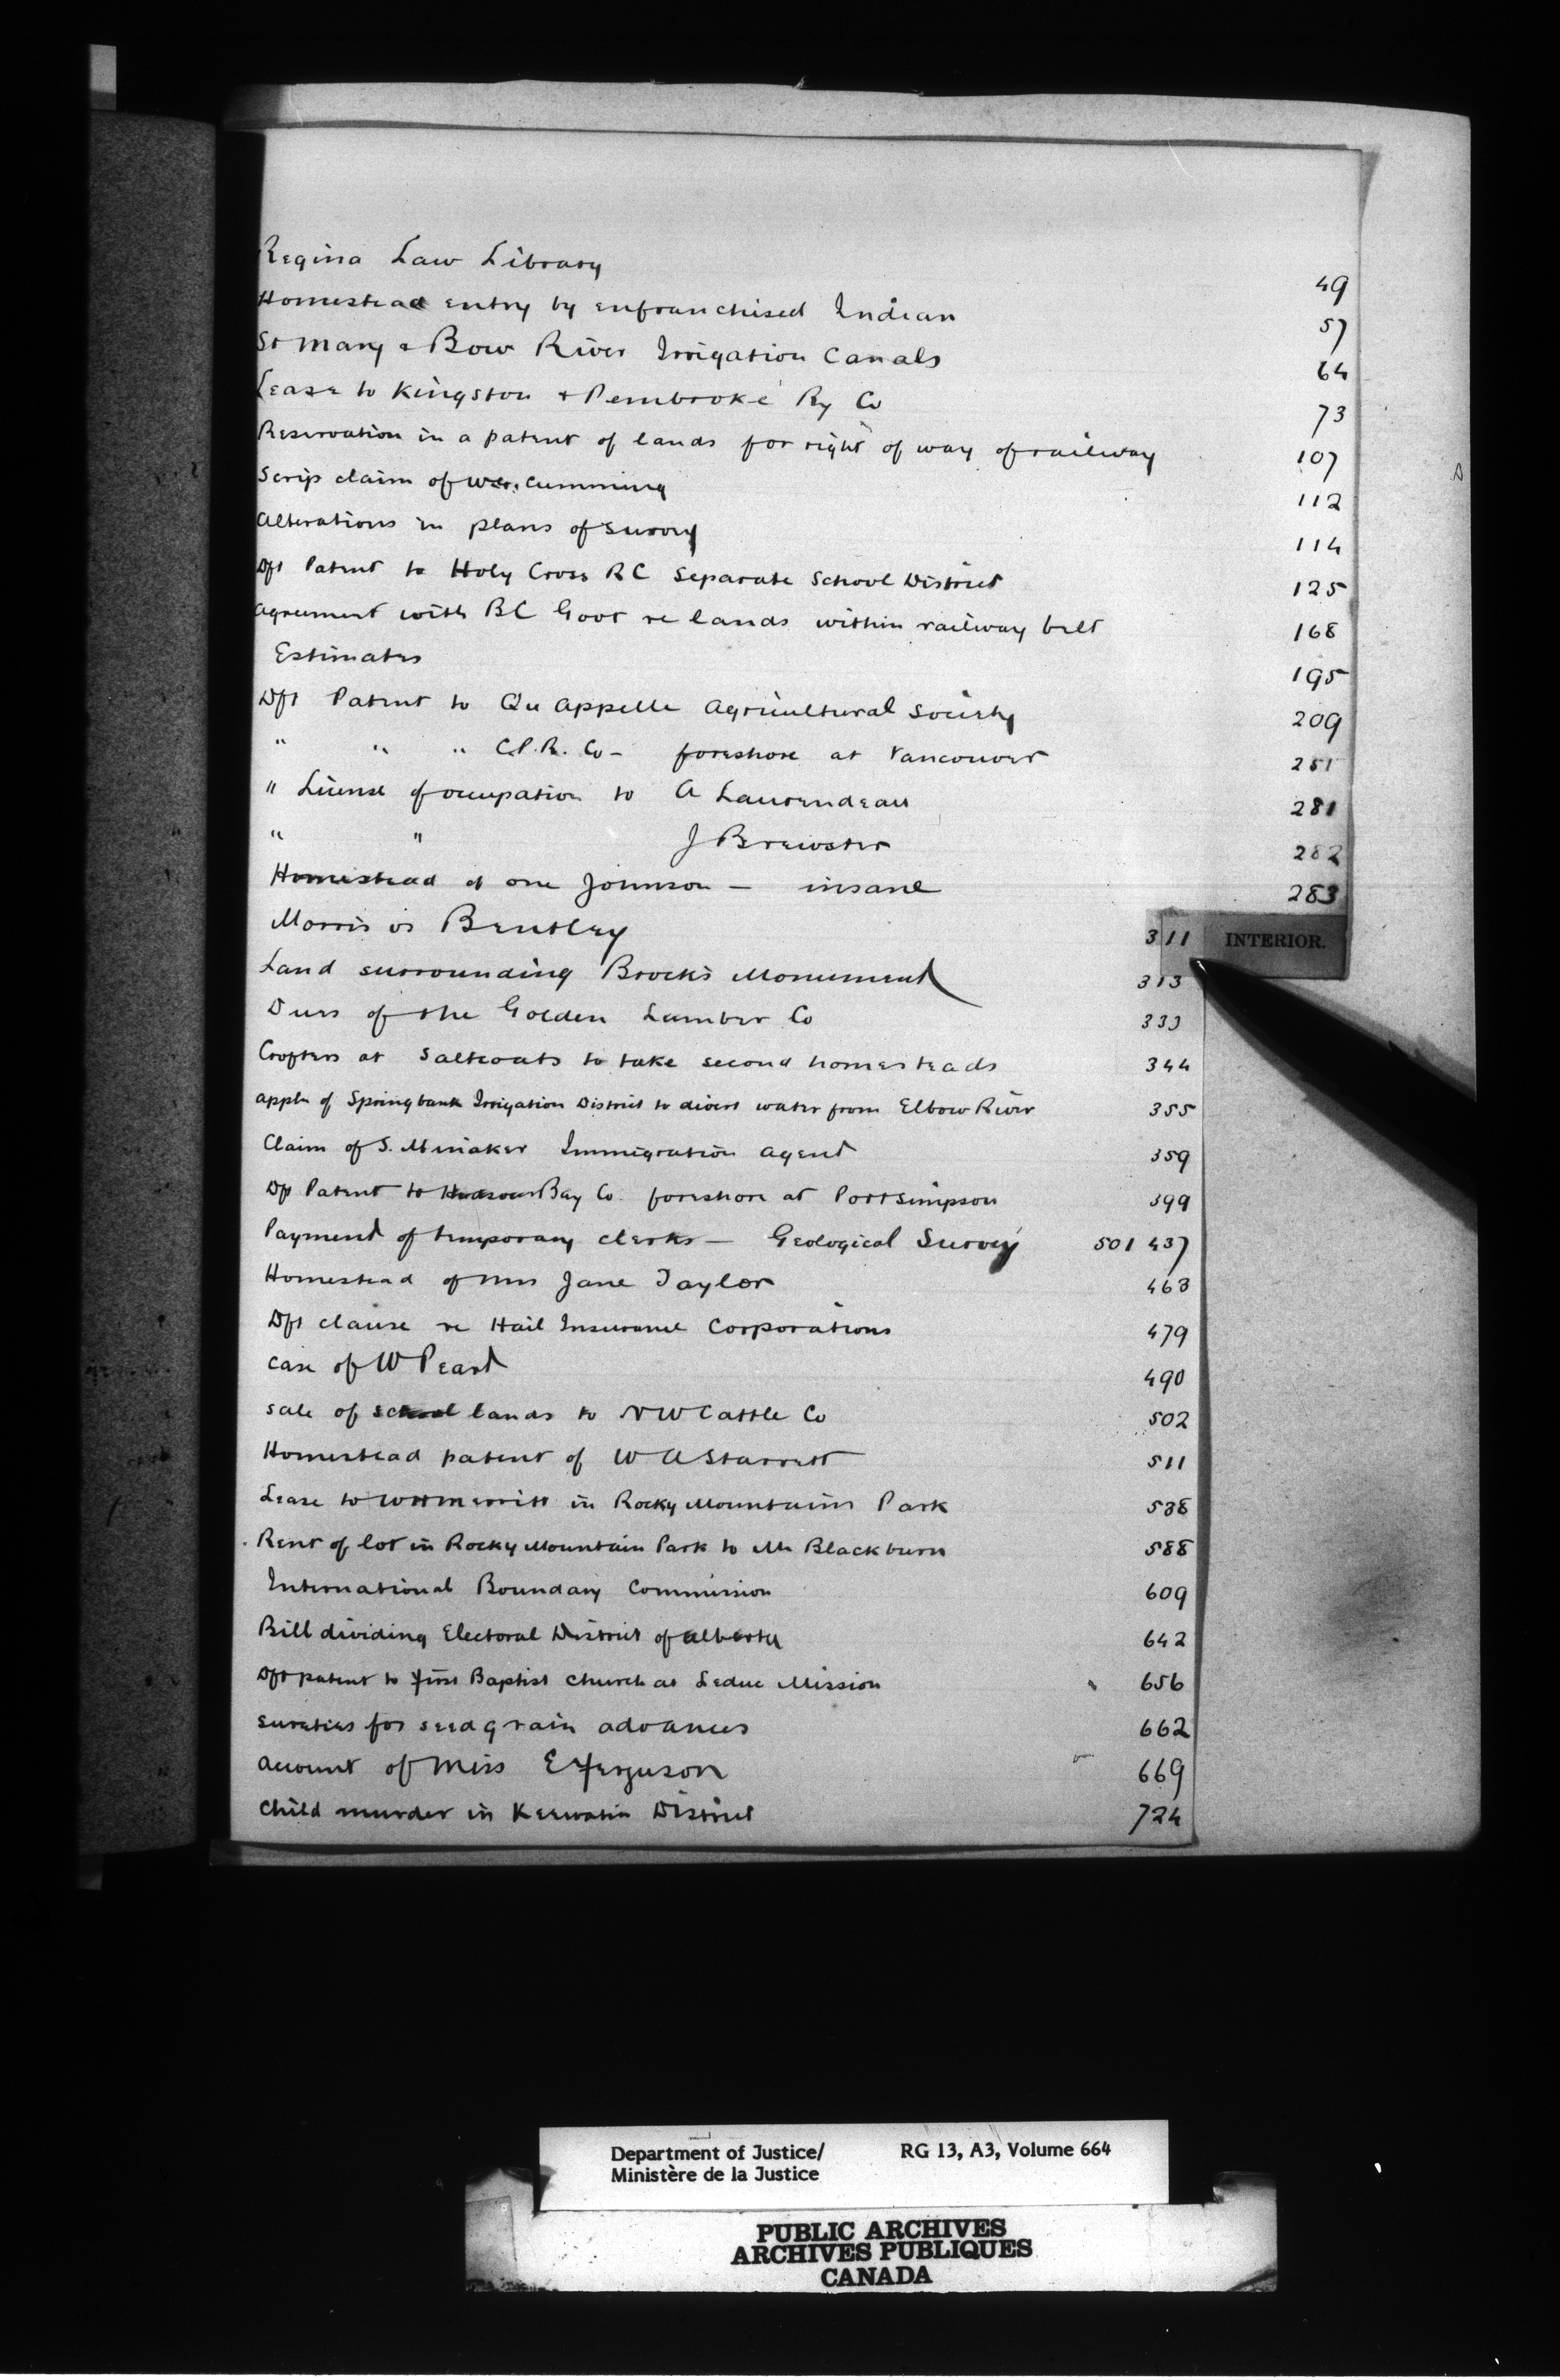 Regina Law Library 49
Homestead entry by enfranchised Indian 57
St Mary & Bow River Irrigation Canals 64
Lease to Kingston & Pembroke Ry Co 73
Reservation in a patent of lands for right of way of railway 107
Scrip claim of Cumming 112
Alterations in plans of Survey 114
Dft Patent to Holy Cross RC Separate School District 125
Agreement with BC Govt re lands within railway belt 168
Estimates 195
Dft Patent to Qu Appelle Agricultural Society 209
" " " C.P.R. Co - foreshore at Vancouver 251
" License of occupation to A Laurendeau 281
" " J Brewster 282
Homestead of one Johnson - insane 283
Morris vs Bentley 311
INTERIOR.
Land surrounding Brock's Monument 313
Dues of the Golden Lumber Co 333
Crofters at Saltcoats to take second homesteads 344
Appln of Springbank Irrigation District to divert water from Elbow River 355
Claim of S. Minaker Immigration Agent 359
Dft Patent to Hudson Bay Co. foreshore at Port Simpson 399
Payment of temporary clerks - Geological Survey 501 437
Homestead of Mrs Jane Taylor 463
Dft clause re Hail Insurance Corporations 479
Case of W Peart 490
Sale of school lands to NW Cattle Co 502
Homestead patent of W A Starrett 511
Lease to WH Merritt in Rocky Mountains Park 538
Rent of lot in Rocky Mountain Park to Mr Blackburn 588
International Boundary Commission 609
Bill dividing Electoral District of Alberta 642
Dft patent to First Baptist Church at Leduc Mission 656
Sureties for seed grain advances 662
Account of Miss E Ferguson 669
Child murder in Keewatin District 724
Department of Justice/ RG 13, A3, Volume 664
Ministère de la Justice
PUBLIC ARCHIVES
ARCHIVES PUBLIQUES
CANADA